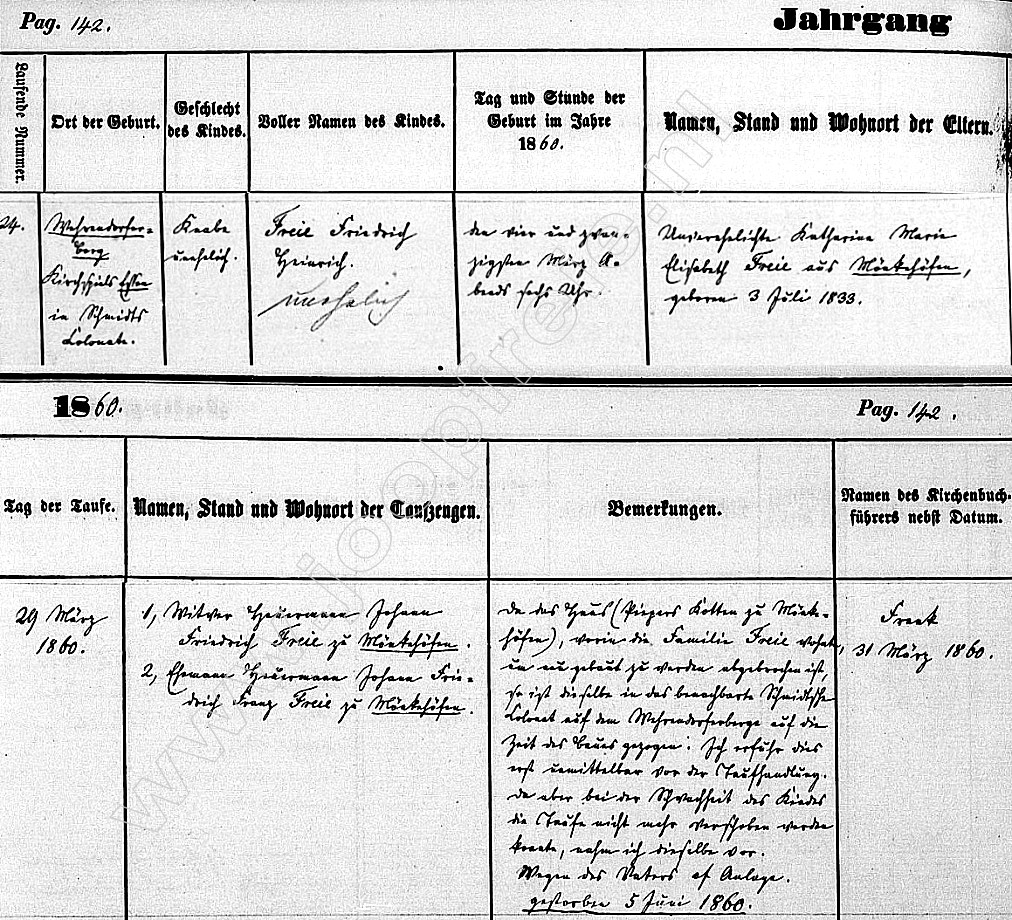 Pag. 142.
Jahrgang
Laufende Nummer.
Ort der Geburt.
Geschlecht
des Kindes.
Voller Namen des Kindes.
Tag und Stunde der
Geburt im Jahre
1860.
Namen, Stand und Wohnort der Eltern.
24.
Wehrendorfer-
berg
Kirchspiels Essen
in Schmidts
Colonate.
Knabe
unehelich.
Freie Friedrich
Heinrich.
unehelich
den vier und zwan-
zigsten März A-
bends sechs Uhr.
Unverehelichte Katharine Marie
Elisabeth Freie aus Mönkehöfen,
geboren 3 Juli 1833.
1860.
Pag. 142.
Tag der Taufe.
Namen, Stand und Wohnort der Taufzeugen.
Bemerkungen.
Namen des Kirchenbuch-
führers nebst Datum.
29 März
1860.
1, Witwer Heuermann Johann
Friedrich Freie zu Mönkehöfen.
2, Ehemann Heuermann Johann Frie-
drich Franz Freie zu Mönkehöfen.
Da das Haus (Piepers Kotten zu Mönke-
höfen), worin die Familie Freie wohnte,
um neu gebaut zu werden abgebrochen ist,
so ist dieselbe in das benachbarte Schmidtsche
Colonat auf dem Wehrendorferberge auf die
Zeit des Baues gezogen. Ich erfuhr dies
erst unmittelbar vor der Taufhandlung.
Da aber bei der Schwachheit des Kindes
die Taufe nicht mehr verschoben werden
konnte, nahm ich dieselbe vor.
Wegen des Vaters cf Anlage.
gestorben 5 Juni 1860.
31 März 1860.
www.joopfree.nl